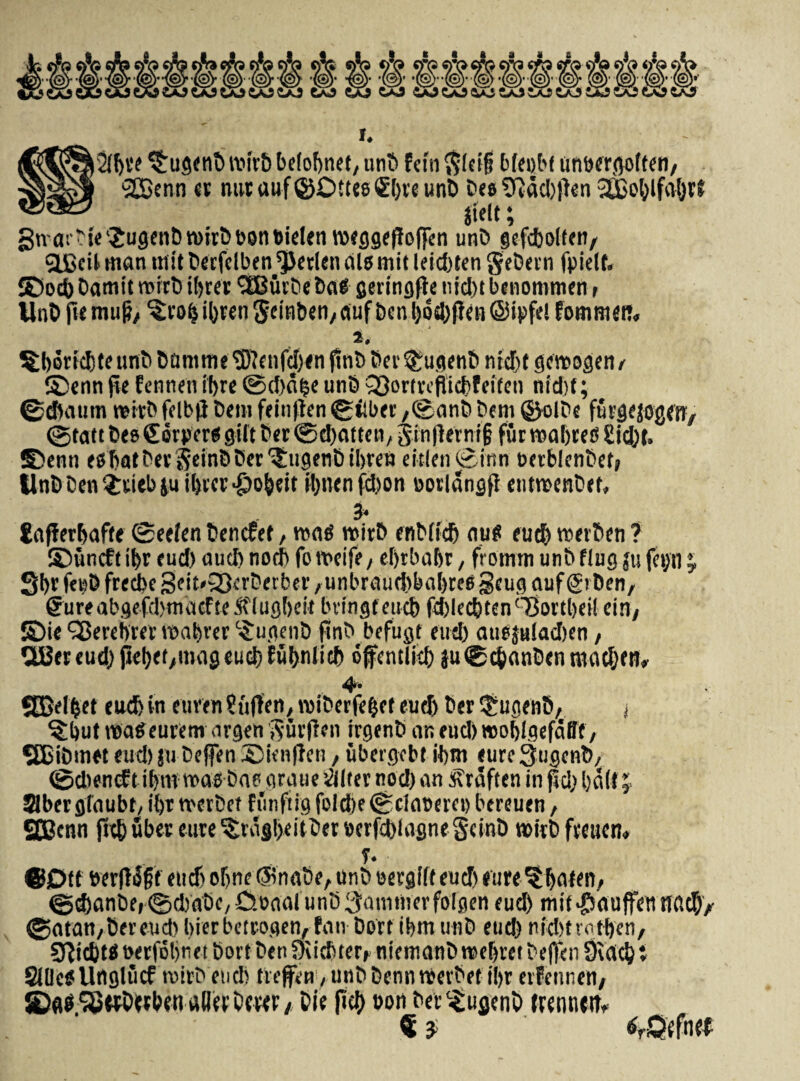 1.
Wahre Tugend wird belohnet, und kein Fleiß bleybt unvergolten,
Wenn er nur auf GOttes Ehre und des Nächsten Wohlfahrt
zielt;
Zwar die Tugend wird von vielen weggestossen und gescholten,
Weil man mit derselben Perlen als mit leichten Federn spielt.
Doch damit wird ihrer Würde das geringste nicht benommen,
Und sie muß, Trotz ihren Feinden, auf den höchsten Gipfel kommen.
2.
Thörichte und dumme Menschen sind der Tugend nicht gewogen,
Denn sie kennen ihre Schätze und Vortreflichkeiten nicht;
Schaum wird selbst dem feinsten Silber, Sand dem Golde fürgezogen,
Statt des Cörpers gilt der Schatten, Finsterniß für wahres Licht.
Denn es hat der Feind der Tugend ihren eitlen Sinn verblendet,
Und den Trieb zu ihrer Hoheit ihnen schon vorlängst entwendet.
3.
Lasterhafte Seelen dencket, was wird endlich aus euch werden?
Dünckt ihr euch auch noch so weise, ehrbahr, fromm und klug zu seyn;
Ihr seyd freche Zeit-Verderber, unbrauchbahres Zeug auf Erden,
Eure abgeschmackte Klugheit bringt euch schlechten Vortheil ein,
Die Verehrer wahrer Tugend sind befugt euch auszulachen,
Wer euch siehet, mag euch kühnlich öffentlich zu Schanden machen.
4.
Welhet euch in euren Lüsten, widersetzet euch der Tugend,
Thut was eurem argen Fürsten irgend an euch wohlgefällt,
Widmet euch zu dessen Diensten, übergebt ihm eure Jugend,
Schenckt ihm was das graue Alter noch an Kräften in sich hält;
Aber glaubt, ihr werdet künftig solche Sclaverey bereuen,
Wenn sich über eure Trägheit der verschlagne Feind wird freuen.
5.
GOtt verstößt euch ohne Gnade, und vergilt euch eure Thaten,
Schande, Schade, Qvaal und Jammer folgen euch mit Hauffen nach,
Satan, der euch hier betrogen, kan dort ihm und euch nicht rathen,
Nichts versöhnet dort den Richter, niemand wehret dessen Rach;
Alles Unglück wird euch treffen, und denn werdet ihr erkennen,
Das Verderben aller derer, die sich von der Tugend trennen.
C 3 6. Oefnet